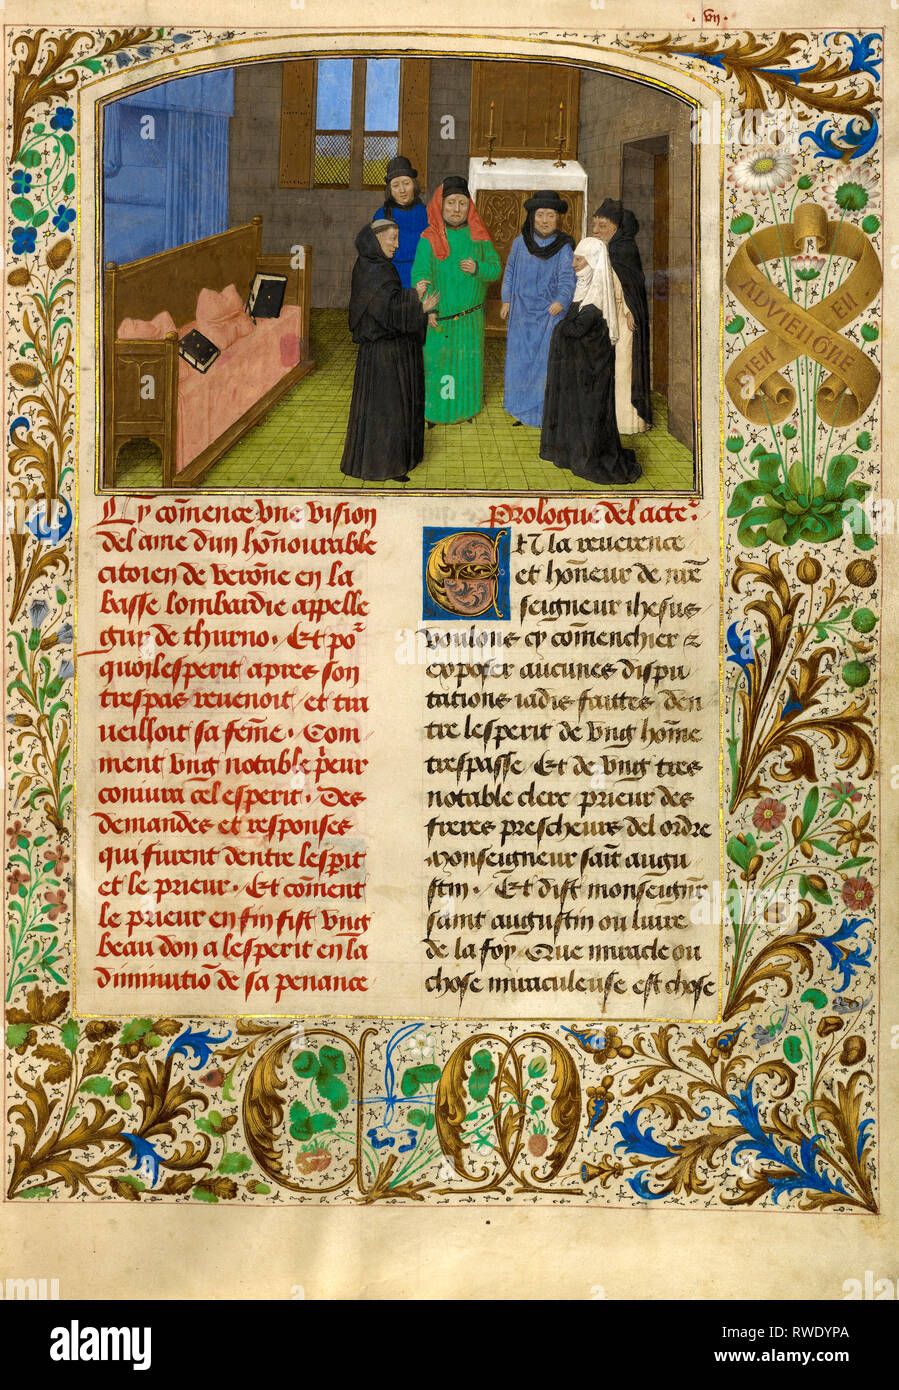 .vij.
BIEN
ADVIENGNE
EN
Cy com̄ence vne vision
del ame dun hōnourable
citoien de verōne en la
basse lombardie appelle
guy de thurno. Et poʳ
quoi lesperit apres son
trespas reuenoit, et tra
ueilloit sa fem̄e. Com
ment vng notable p̄eur
coniura cel esperit. Des
demandes et responses
qui furent dentre lesp̄it
et le prieur. Et com̄ent
le prieur en fin fist vng
beau don a lesperit en la
diminutiō de sa penance
Prologue del acteʳ
EN la reuerence
et hōneur de nr̄e
seigneur ihesus
voulons cy com̄enchier &
exposer aucunes dispu
tations iadis faittes den
tre lesperit de vng hom̄e
trespasse, Et de vng tres
notable clerc prieur des
freres prescheurs del ordre
Monseigneur sait augu
stin. Et dist monseignr̄
saint augustin ou liure
de la foy, Que miracle ou
chose miraculeuse est chose
a alamy
alamy
Image ID: RWDYPA
www.alamy.com